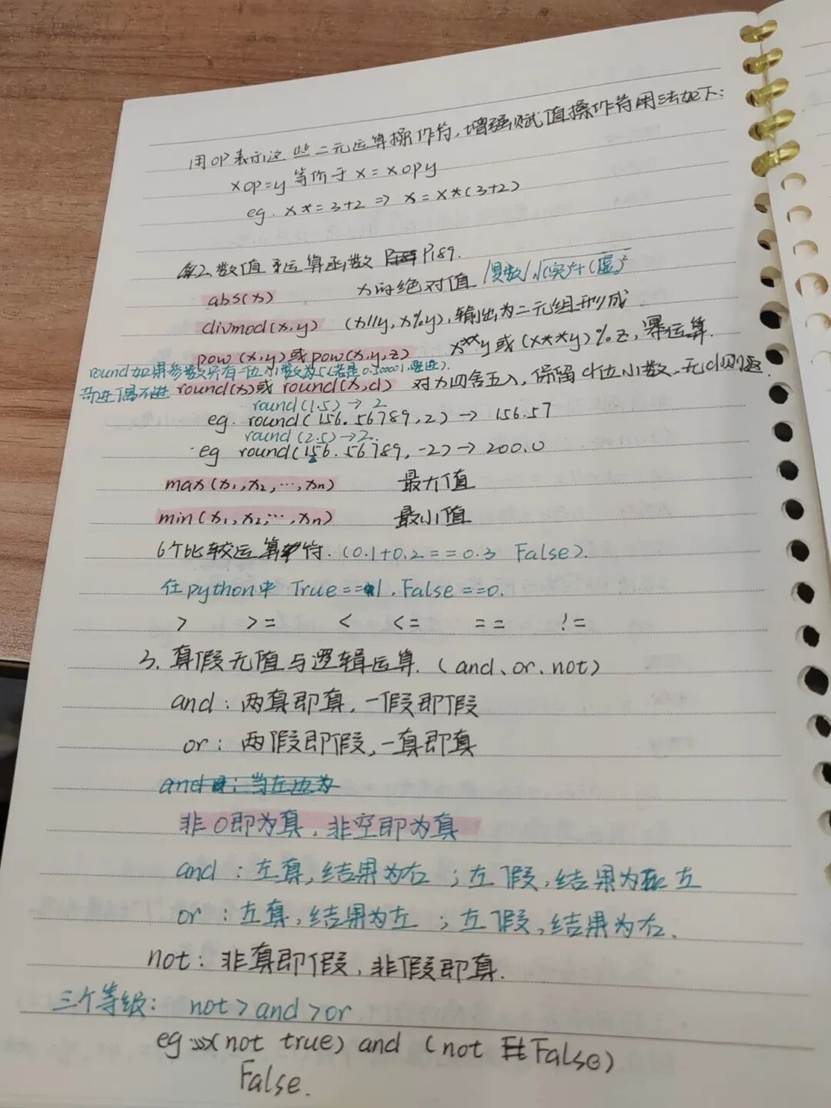 用op表示这些二元运算操作符,增强赋值操作符用法如下:
x op=y 等价于 x = x op y
eg. x *= 3+2 => x = x*(3+2)
2、数值运算函数 P189.
abs(x) x的绝对值 |复数| √(实)²+(虚)²
divmod(x,y) (x//y, x%y),输出为二元组形式
pow(x,y)或pow(x,y,z) x**y或(x**y)%z,幂运算.
round如果参数只有一位小数为5(若是0.50001,要进).
奇进偶不进 round(x)或round(x,d) 对x四舍五入,保留d位小数,无d则返
round(1.5) → 2
eg. round(156.56789,2) → 156.57
round(2.5) → 2.
eg round(156.56789,-2) → 200.0
max(x₁,x₂,…,xn) 最大值
min(x₁,x₂,…,xn) 最小值
6个比较运算符. (0.1+0.2==0.3 False).
在python中 True==1, False==0.
> >= < <= == !=
3. 真假无值与逻辑运算.(and、or、not)
and:两真即真,一假即假
or:两假即假,一真即真
and:当左边为
非0即为真,非空即为真
and:左真,结果为右;左假,结果为左
or:左真,结果为左;左假,结果为右.
not:非真即假,非假即真.
三个等级: not > and > or
eg >>>(not true) and (not False)
False.